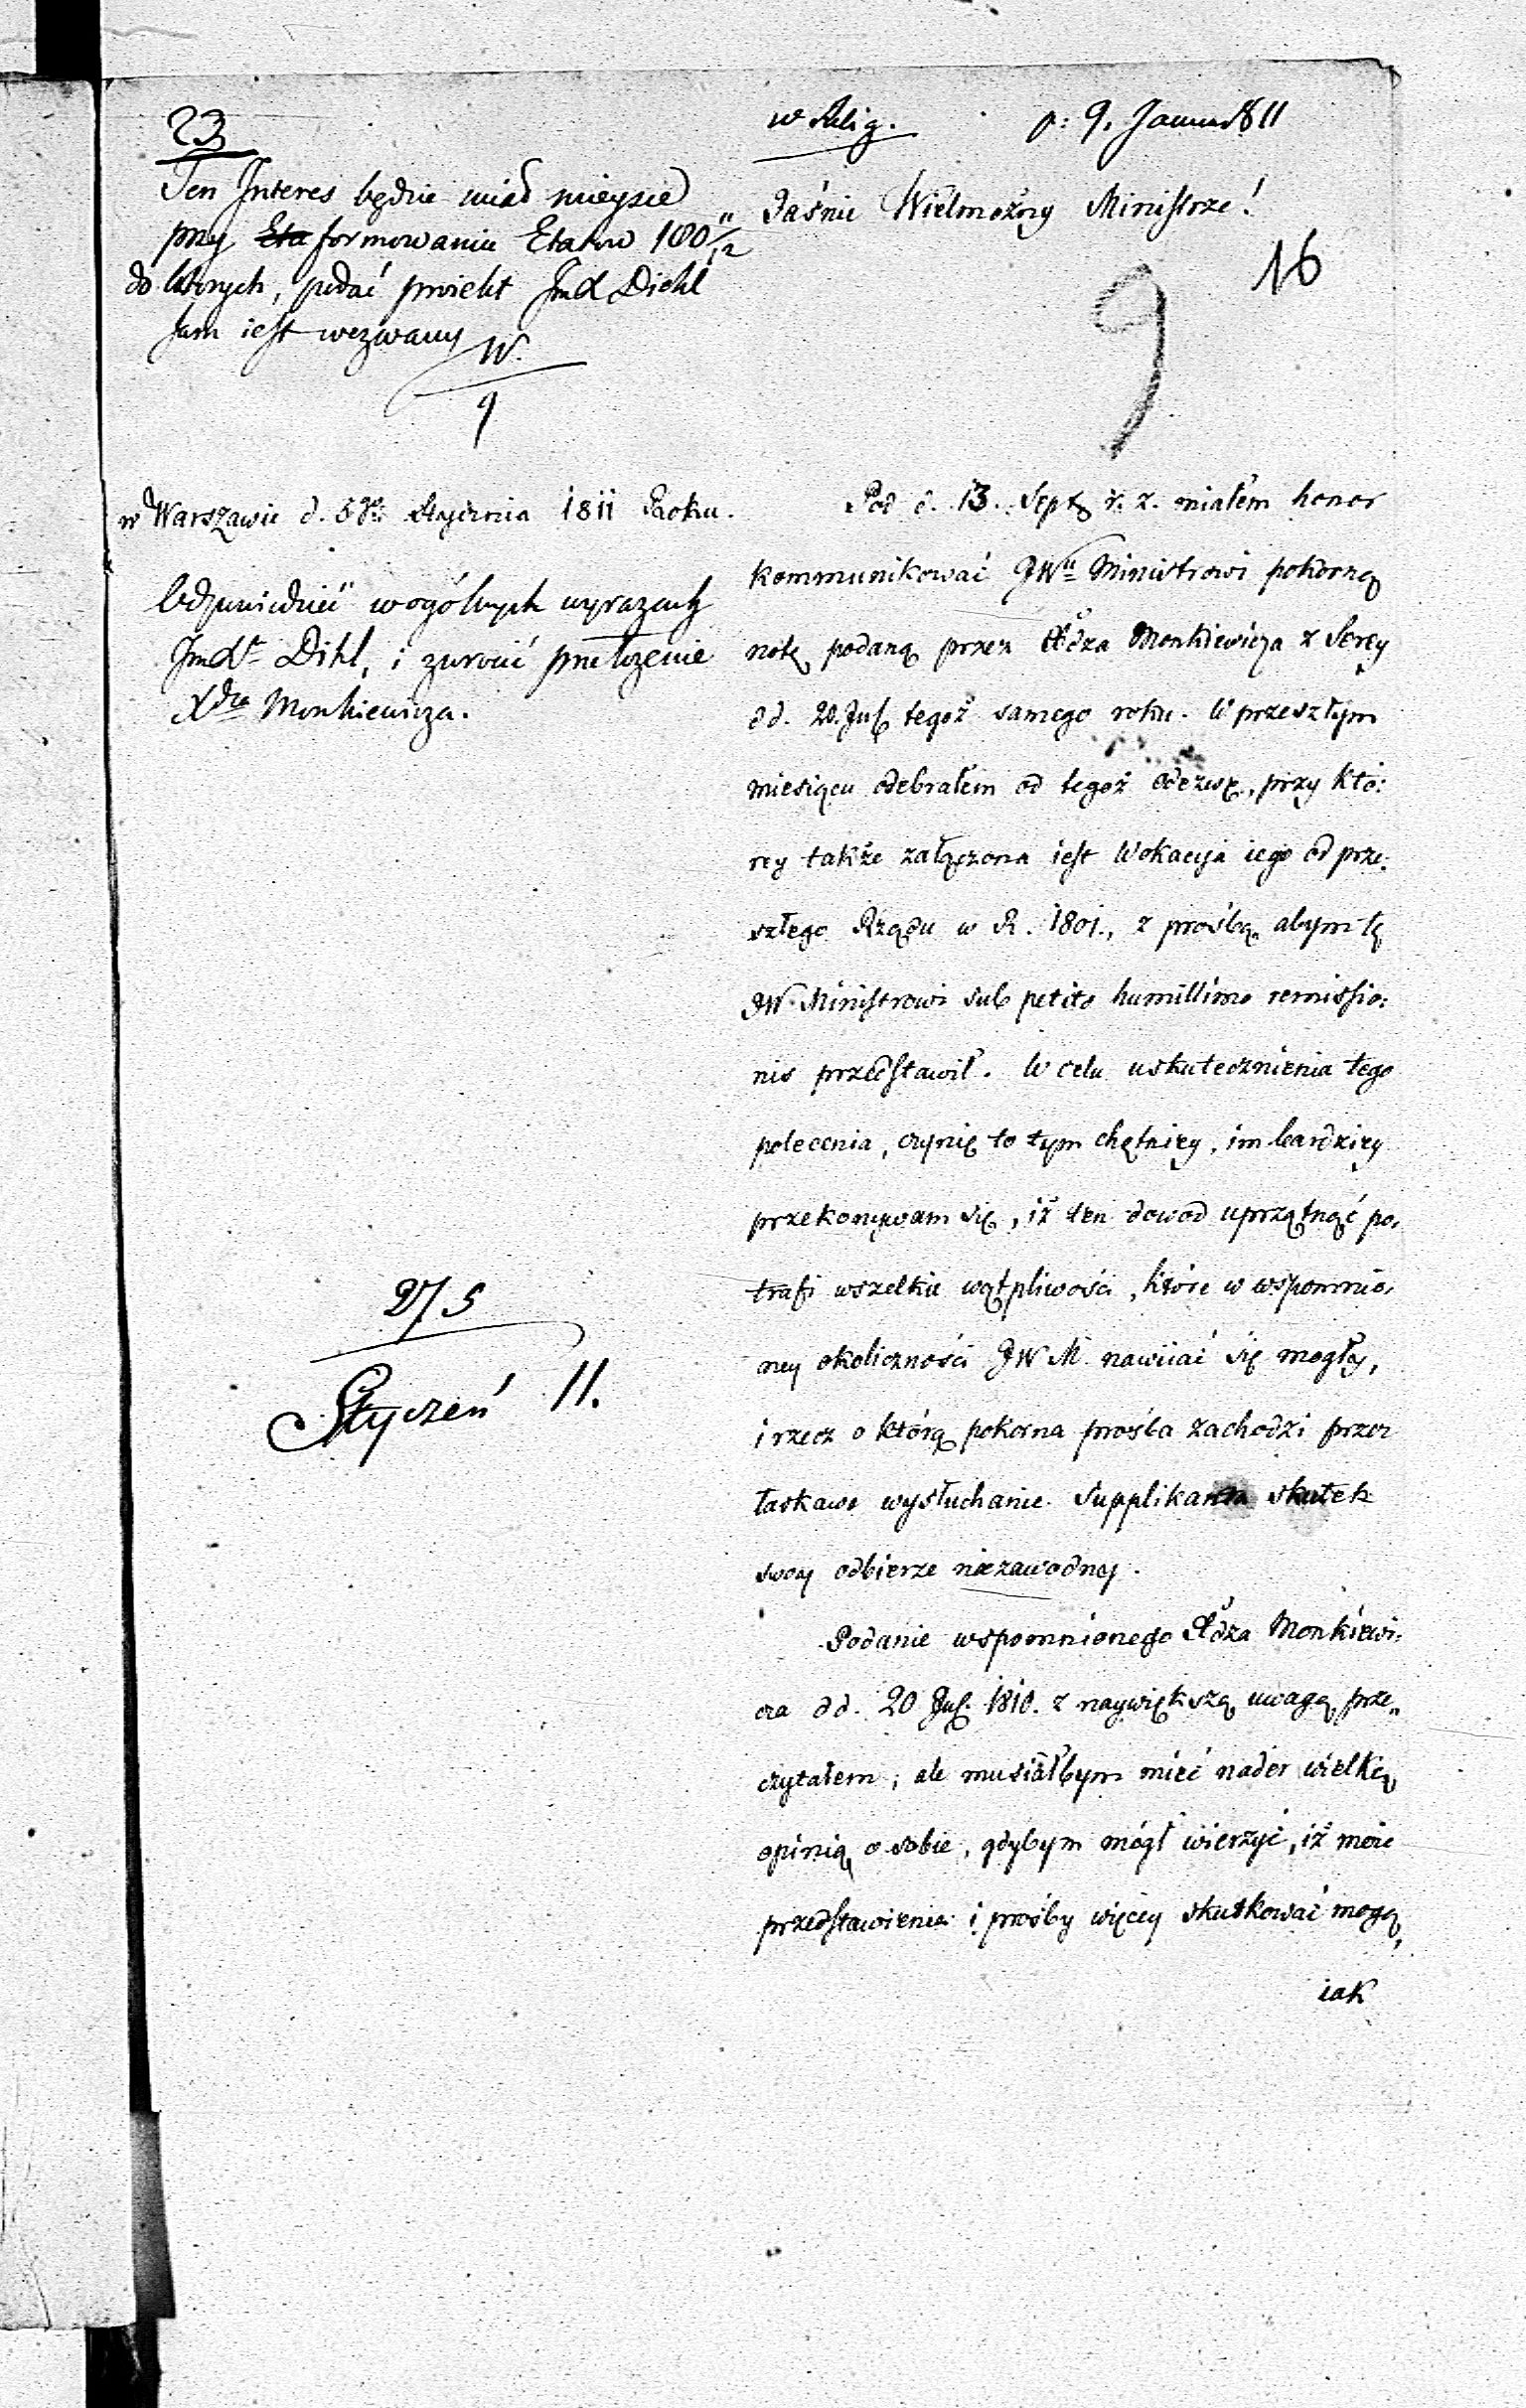 23
Ten Interes będzie miał mieysce
przy Eta formowaniu Etatow 18011/12
do których, podać proiekt JmX Diehl
sam iest wezwany
W.
9
w Warszawie d. 5go Stycznia 1811 Roku.
Odpowiedzieć w ogólnych wyrazach
JmXt Dihl, i zwrocić przełożenie
Xdza Monkiewicza.
275
Styczeń 11.
w Relig. p: 9. Januar 811
Jaśnie Wielmożny Ministrze!
16
9
Pod d. 13. Sept r. z. miałem honor
kommunikować JWu Ministrowi pokorną
notę podaną przez Xdza Monkiewicza z Serey
dd. 20. Jul tegoż samego roku. W przeszłym
miesiącu odebrałem od tegoż odezwę, przy któ:
rey także załączona iest Wokacyja iego od prze:
szłego Rządu w R. 1801., z prośbą abym tę
JW. Ministrowi sub petito humillimo remissio:
nis przedstawił. W celu uskutecznienia tego
polecenia, czynię to tym chętniey, im bardziey
przekonywam się, iż ten dowod uprzątnąć po,
trafi wszelkie wątpliwości, które w wspomnio,
ney okoliczności JW M. nawiiać się mogły,
i rzecz o którą pokorna prośba zachodzi przez
łaskawe wysłuchanie Supplikanta skutek
swoy odbierze niezawodny.
Podanie wspomnionego Xdza Monkiewi:
cza dd. 20 Jul. 1810. z naywiększą uwagą prze„
czytałem, ale musiałbym mieć nader wielką
opinią o sobie, gdybym mógł wierzyć, iż moie
przedstawienia i prośby więcey skutkować mogą,
iak